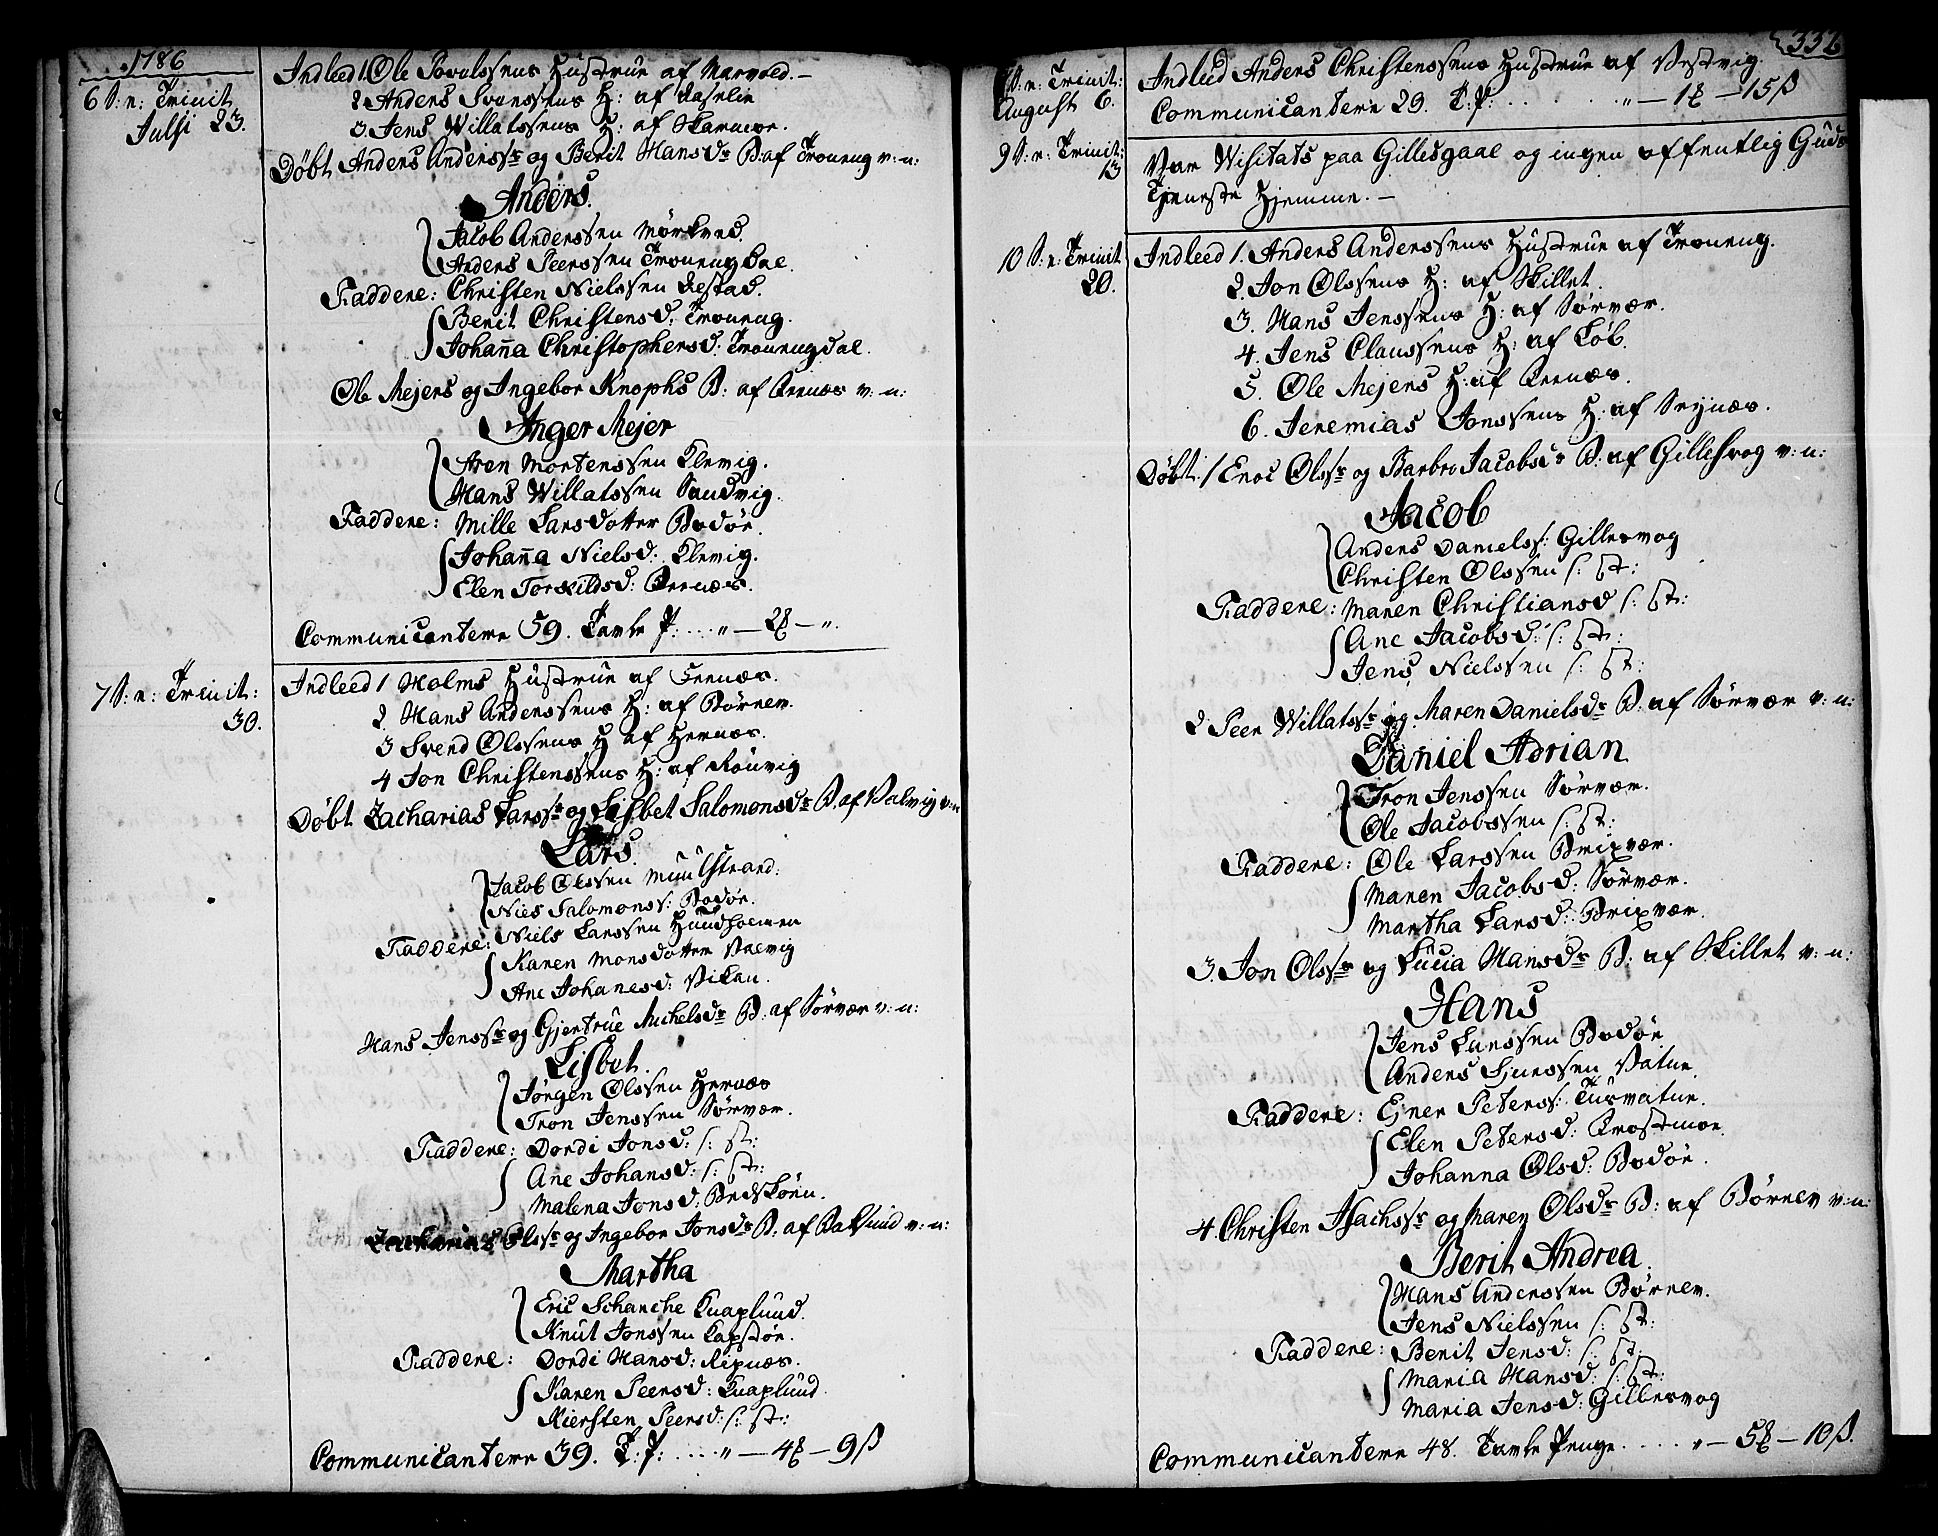 1786
6 S: e: Trinit
Julii 23.
Indleed 1 Ole Povelssens Hustrue af Marvold.-
2 Anders Svenssens H: af
3 Jens Willatssens H: af
Døbt Anders Anderssr og Berit Hansdr B: af Troneng v: n:
Anders.
Jacob Anderssen Mørkved.
Anders Peerssen Tronengdal.
Faddere: Christen Nielssen Restad.
Berit Christensd: Troneng.
Johana Christophersd: Tronengdal.
Ole Mejers og Ingebor Knophs B: af v: n:
Inger Mejer
Aren Mortenssen Klevig.
Hans Willatssen Sandvig.
Faddere: Mille Larsdotter Bodøe.
Johana Nielsd: Klevig.
Elen Torkildsd:
Communicantere 59. Tavle P: .... " — 2 — ".
7 S: e: Trinit:
30.
Indleed 1 Holms Hustrue af
2. Hans Anderssens H: af Børnev.
3 Svend Olssens H af Hernæs.
4 Jon Christenssens H: af Rønvig
Døbt Zacharias Larssr og Lisbet Salomonsdr B. af Valvig v: n:
Lars.
Jacob Olssen Muulstrand.
Niels Salomons: Bodøe.
Faddere: Niels Larssen Hundholmen
Karen Monsdotter Valvig
Ane Johanesd: Vikan.
Hans Jenssr og Gjertrue Michelsdr B: af Sørvær v: n:
Lisbet.
Jørgen Olssen Hernæs
Tron Jenssen Sørvær.
Faddere: Dordi Jonsd: s: St:
Ane Johansd: s: St:
Malena Jonsd:
Zacharias Olssr og Ingebor Jonsdr B: af v: n:
Martha
Eric Schanche Knaplund.
Knut Jonssen
Faddere: Dordi Hansd: Ripnæs.
Karen Peersd: Knaplund.
Kiersten Peersd: s: St:
Communicantere 39. T: P: .... " — 4 — 9 ß
332
8 S: e: Trinit:
August 6.
Indleed Anders Christenssens Hustrue af Vestvig.
Communicantere 29. T: P: .... " — 1 — 15 ß
9 S: e: Trinit:
13
Var Visitats paa Gillesgaal og ingen offentlig Guds
Tjeneste Hjemme.-
10 S: e: Trinit
20.
Indleed 1. Anders Anderssens Hustrue af Troneng.
2. Jon Olssens H: af Skillet.
3. Hans Jenssens H: af Sørvær.
4. Jens Claussens H: af Løb.
5. Ole Mejers H: af
6. Jeremias Jonssens H: af
Døbt 1 Enoc Olssr og Barbro Jacobsdr B: af Gillesvog v: n:
Jacob
Anders Daniels: Gillesvog
Christen Olssen s: St:
Faddere: Maren Christiansd s: St:
Ane Jacobsd: s: St:
Jens Nielssen s: St:
2 Peer Willatssr og Maren Danielsdr B: af Sørvær v: n:
Daniel Adrian
Tron Jenssen Sørvær.
Ole Jacobssen s: St:
Faddere: Ole Larssen Brixvær.
Maren Jacobsd: Sørvær.
Martha Larsd: Brixvær.
3. Jon Olssr og Lucia Hansdr B: af Skillet v: n:
Hans
Jens Larssen Bodøe
Anders Vatne.
Faddere: Ejner Peters: Tusvatne.
Elen Petersd:
Johanna Olsd: Bodøe.
4. Christen Isachssr og Maren Olsdr B: af Børnev v: n:
Berit Andrea
Hans Anderssen Børnev.
Jens Nielssen s: St:
Faddere: Berit Jensd: s: St:
Maria Hansd: s: St:
Maria Jensd: Gillesvog
Communicantere 48. Tavle Penge .... " — 5 — 10 ß.